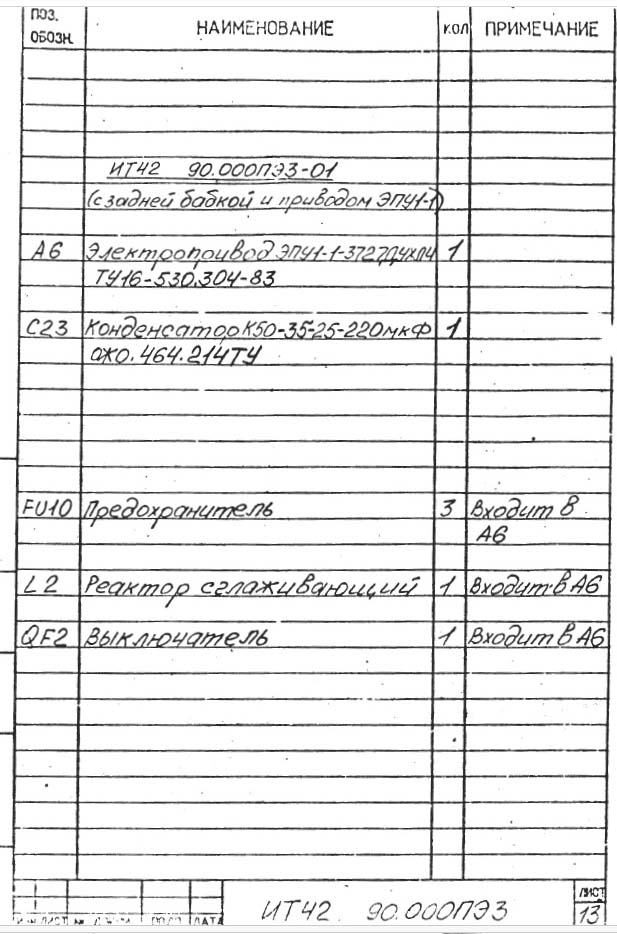 ПОЗ. ОБОЗН. НАИМЕНОВАНИЕ КОЛ ПРИМЕЧАНИЕ
ИТ42 90.000ПЭ3-01
(с задней бабкой и приводом ЭПУ1-1)
А6 Электропривод ЭПУ1-1-3727ДУХЛ4 1
ТУ16-530.304-83
С23 Конденсатор К50-35-25-220мкФ 1
ОЖО.464.214ТУ
FU10 Предохранитель 3 Входит в
А6
L2 Реактор сглаживающий 1 Входит в А6
QF2 Выключатель 1 Входит в А6
ЛИСТ ДАТА ИТ42 90.000ПЭ3 ЛИСТ
13